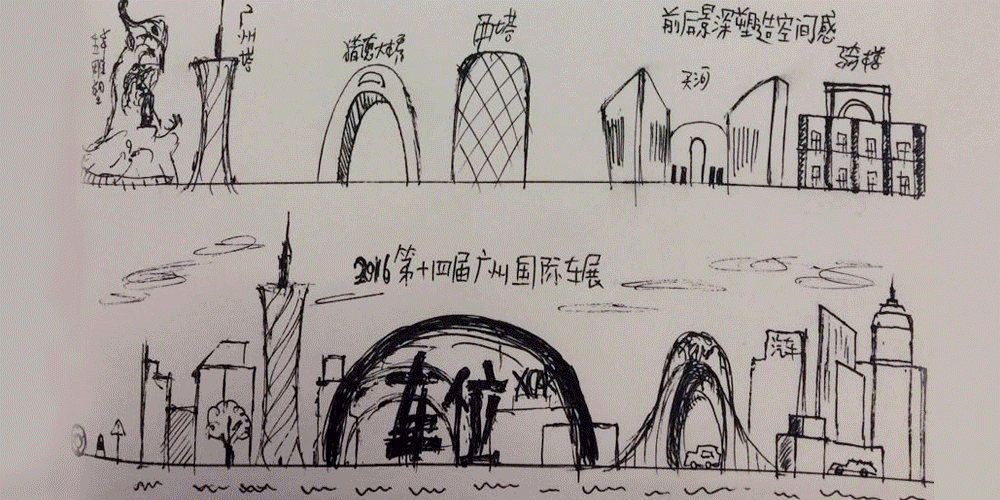 广州塔
猎德大桥
西塔
前后景深塑造空间感
天河
骑楼
2016第十四届广州国际车展
车位
XCAR
汽车